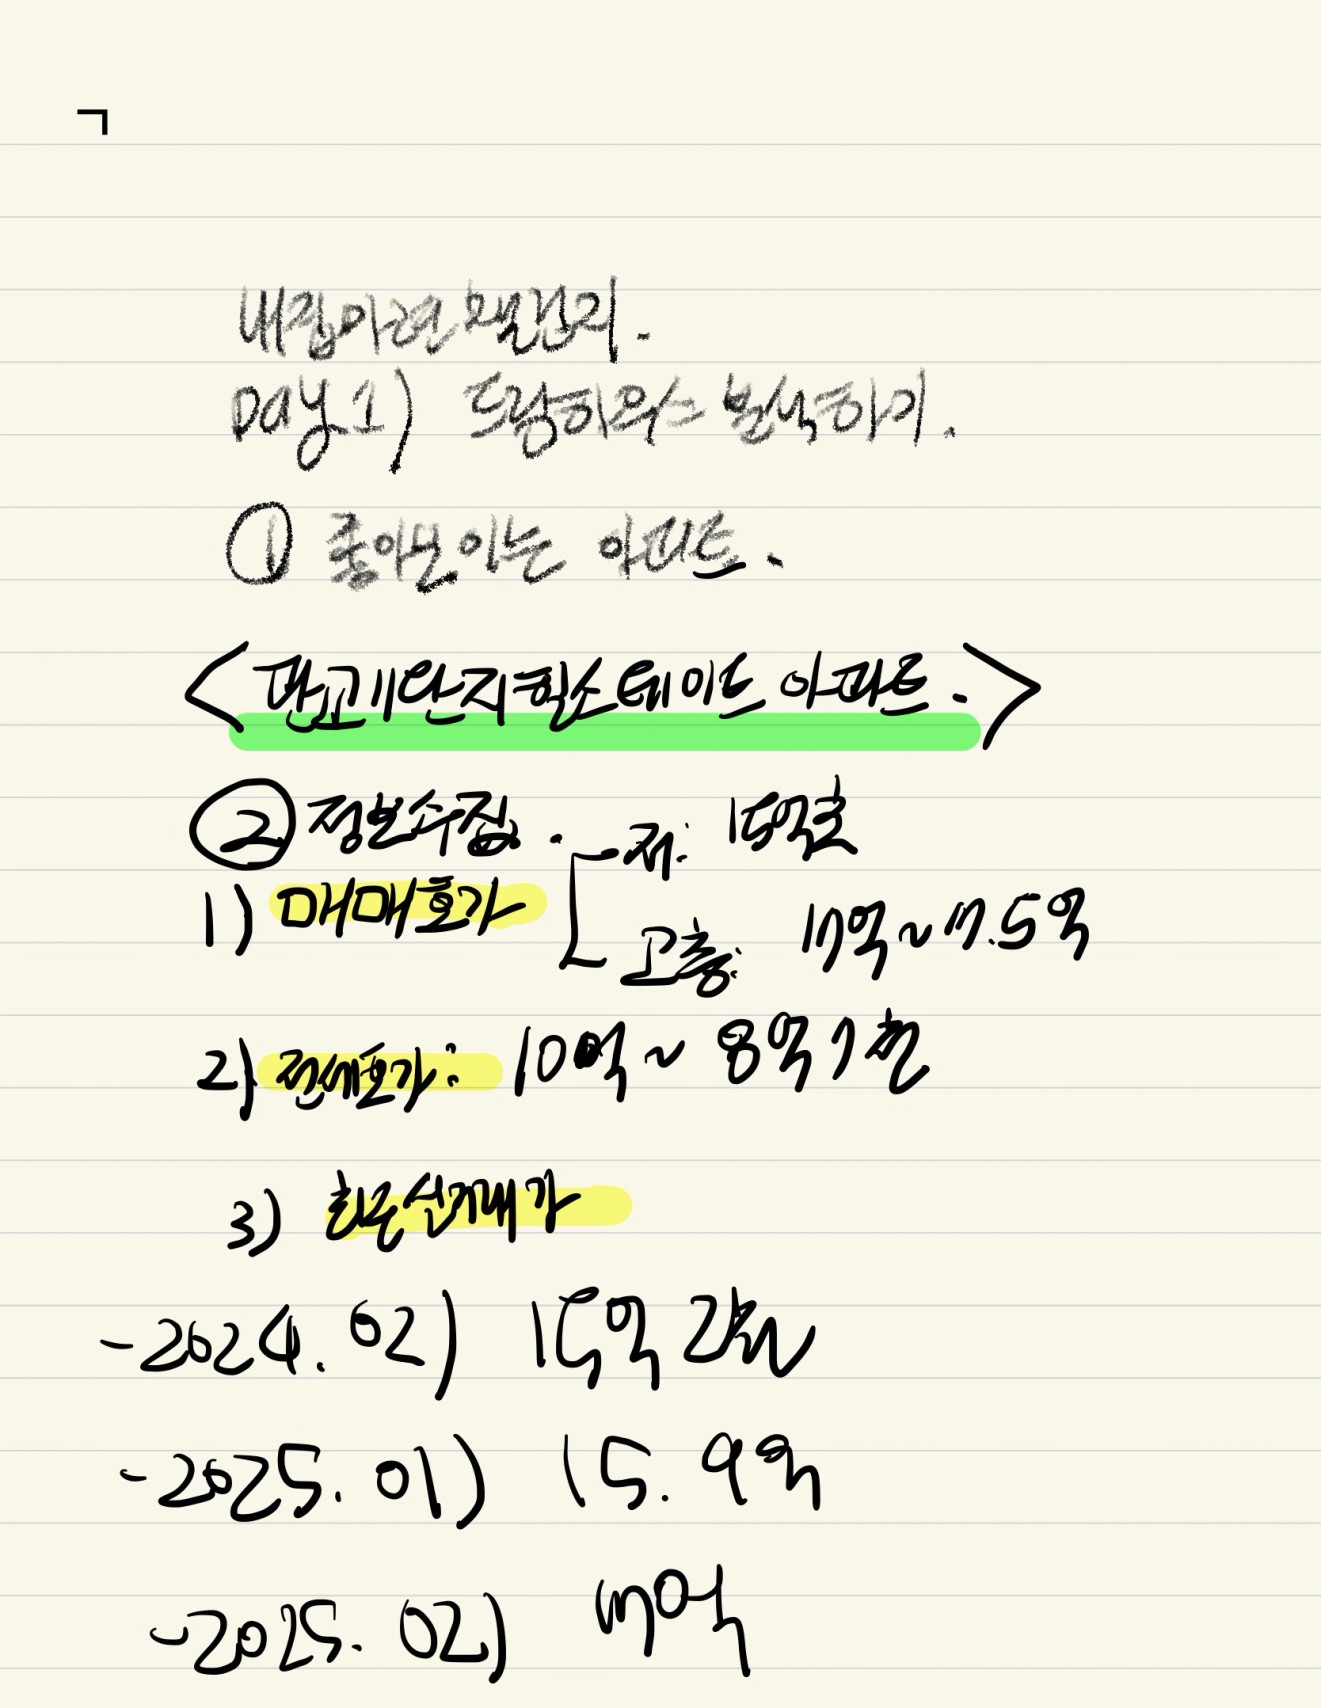 ㄱ
내집마련 챌린지.
Day.1) 드림하우스 분석하기.
① 좋아보이는 아파트.
<판교1단지힐스테이트 아파트.>
② 정보수집.
저: 15억초
1) 매매호가
고층: 17억~17.5억
2) 전세호가: 10억~ 8억7천
3) 최근실거래가
-2024.02) 15억 2천
-2025.01) 15.9억
-2025.02) 17억